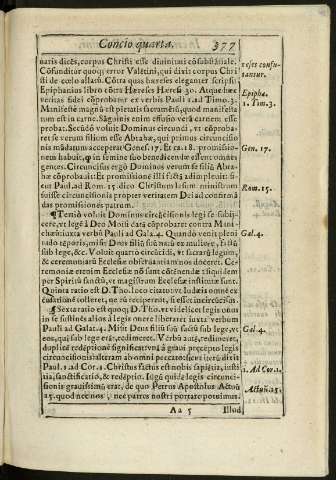 Concio quarta. 377
naris dicēs, corpus Christi esse divinitati cōsubstātiale.
Cōfunditur quoq; error Valētini, qui dixit corpus Christi
de cœlo allatū. Cōtra quas hæreses eleganter scripsit
Epiphanius libro cōtra Hæreses Heres. 30. Atque hæc
veritas fidei cōprobatur ex verbis Pauli 1. ad Timo. 3.
Manifestè magnū est pietatis sacramētū, quod manifestatum
est in carne. Sāguinis enim effusio verā carnem esse
probat. Secūdò voluit Dominus circūcidi, vt cōprobaret
se verum filium esse Abrahæ, qui primus circuncisionis
mādatum acceperat Genes. 17. Et ca. 18. promissionem
habuit, q in semine suo benedicendæ essent omnes
gentes. Circuncisus ergo Dominus verum se filiū Abrahæ
cōprobavit: Et promissione illi factā adimplevit: sicut
Paul. ad Rom. 15. dico Christum Iesum ministrum
fuisse circuncisionis propter veritatem Dei ad confirmādas
promissiones patrum.
¶ Tertiò voluit Dominus circūcisionis legi se subijcere,
vt legē à Deo Mosi datā comprobaret contra Manichæos
iuxta verba Pauli ad Gala. 4. Quando venit plenitudo
tēporis, misit Deus filiū suū natū ex muliere, factū
sub lege, &c. Voluit quartò circūcidi, vt sacrarū legum,
& ceremoniarū Ecclesiæ obedientiam nos doceret. Ceremoniæ
enim Ecclesiæ nō sunt cōtēnendæ: siquidem
per Spiritū sanctū, vt magistrum Ecclesiæ institutæ sunt.
Quinta ratio est D. Tho. loco citato: vt Iudæis omnē excusationē
tolleret, ne eū reijcerent, si esset incircūcisus.
¶ Sexta ratio est quoq; D. Tho. vt videlicet legis onus
in se sustinēs alios à legis onere liberaret iuxta verbum
Pauli ad Galat. 4. Misit Deus filiū suū factū sub lege, vt
eos, qui sub lege erāt, redimeret. Verbū autē, redimeret,
duplicē redēptionē significat: vnā à gravi præcepto legis
circuncisionis: alteram ab omni peccato: sicut scribit
Paul. 1. ad Cor. 1. Christus factus est nobis sapiētia, iustitia,
sanctificatio, & redēptio. Iugū quidē legis circuncisionis
gravissimū erat, de quo Petrus Apostolus Actuū
15. quod nec nos, nec patres nostri portare potuimus.
Aa 5 Illud
Epipha.
1. Tim. 3.
Gen. 17.
Rom. 15.
Gal. 4.
Gal. 4.
1. Ad Cor. 1.
Actuū. 15.